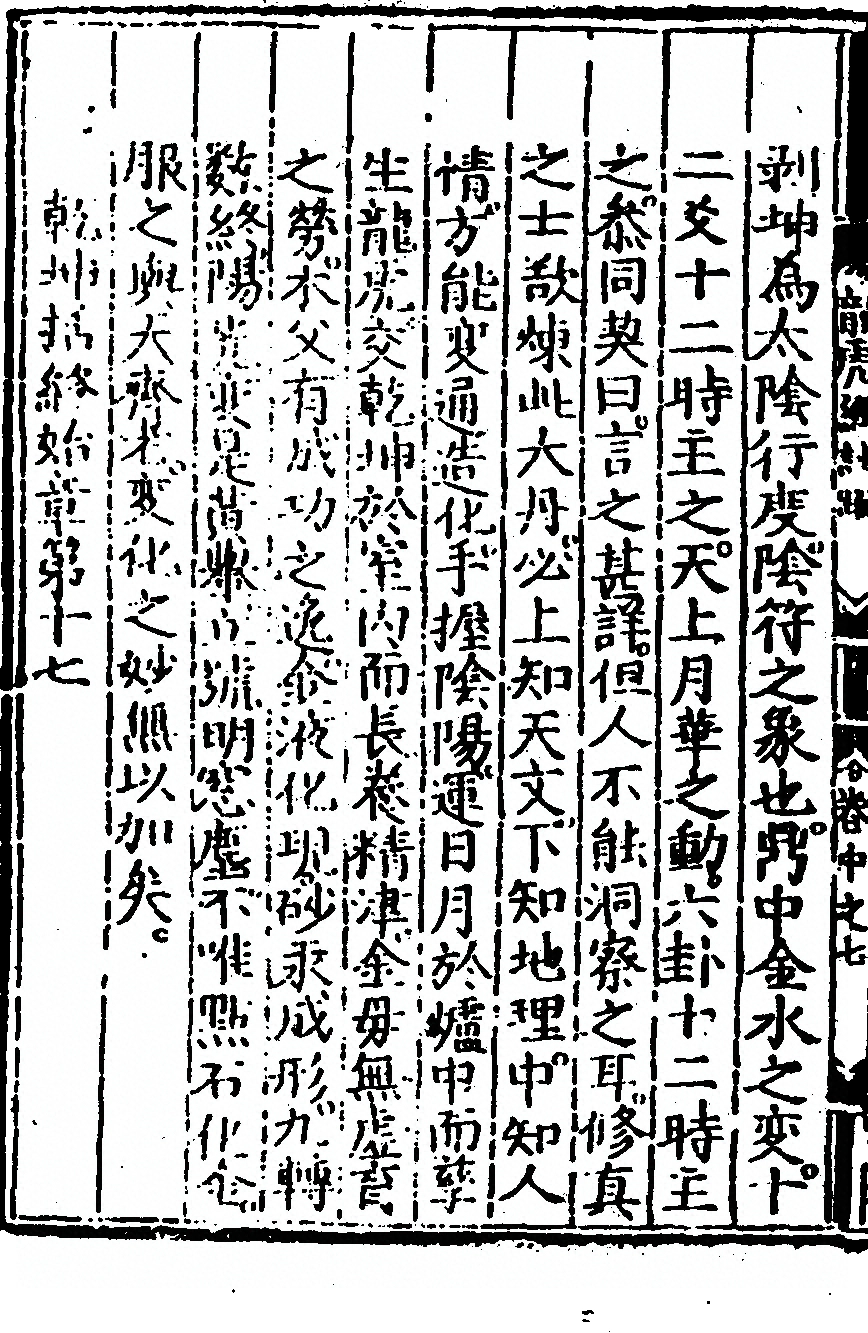 剥坤為太陰行度陰符之象也鼎中金水之変十
二爻十二時主之天上月華之動六卦十二時主
之叅同契曰言之甚詳但人不能洞察之耳修真
之士欲煉此大丹必上知天文下知地理中知人
情方能变通造化手握陰陽運日月於爐中而孕
生龍虎交乾坤於室内而長養精津金母無虚育
之勞木父有成功之逸金液化現砂汞成形九轉
数終陽光更是黄轝立號明窓塵不唯點石化金
服之與天齊老变化之妙無以加矣
乾坤括終始章第十七
龍虎經註疏
卷中之七